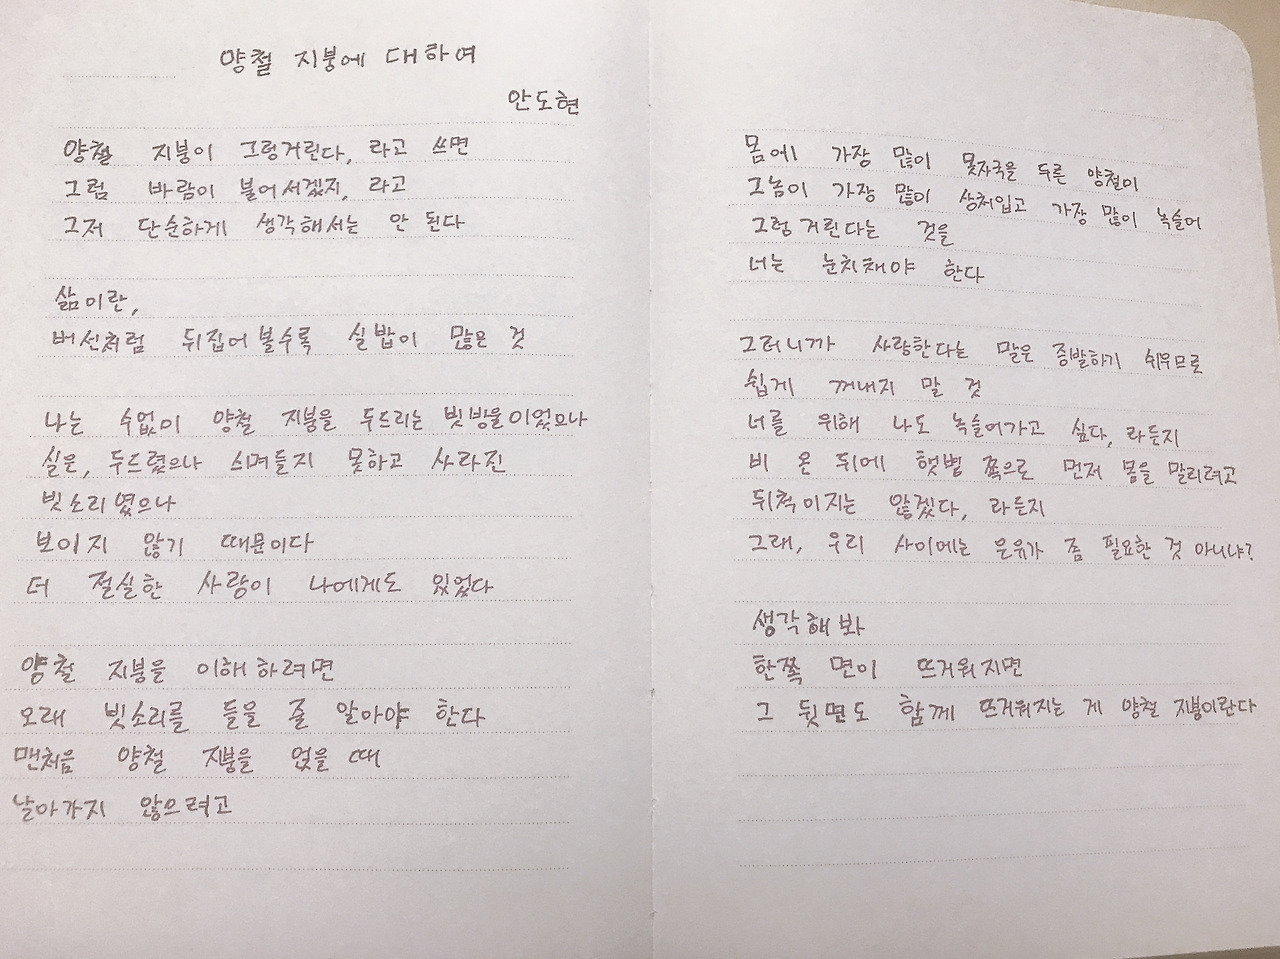 양철 지붕에 대하여
안도현
양철 지붕이 그렁거린다, 라고 쓰면
그럼 바람이 불어서겠지, 라고
그저 단순하게 생각해서는 안 된다
삶이란,
버선처럼 뒤집어볼수록 실밥이 많은 것
나는 수없이 양철 지붕을 두드리는 빗방울이었으나
실은, 두드렸으나 스며들지 못하고 사라진
빗소리였으나
보이지 않기 때문이다
더 절실한 사랑이 나에게도 있었다
양철 지붕을 이해하려면
오래 빗소리를 들을 줄 알아야 한다
맨처음 양철 지붕을 얹을 때
날아가지 않으려고
몸에 가장 많이 못자국을 두른 양철이
그놈이 가장 많이 상처입고 가장 많이 녹슬어
그렁거린다는 것을
너는 눈치채야 한다
그러니까 사랑한다는 말은 증발하기 쉬우므로
쉽게 꺼내지 말 것
너를 위해 나도 녹슬어가고 싶다, 라든지
비 온 뒤에 햇볕 쪽으로 먼저 몸을 말리려고
뒤척이지는 않겠다, 라든지
그래, 우리 사이에는 은유가 좀 필요한 것 아니냐?
생각해봐
한쪽 면이 뜨거워지면
그 뒷면도 함께 뜨거워지는 게 양철 지붕이란다